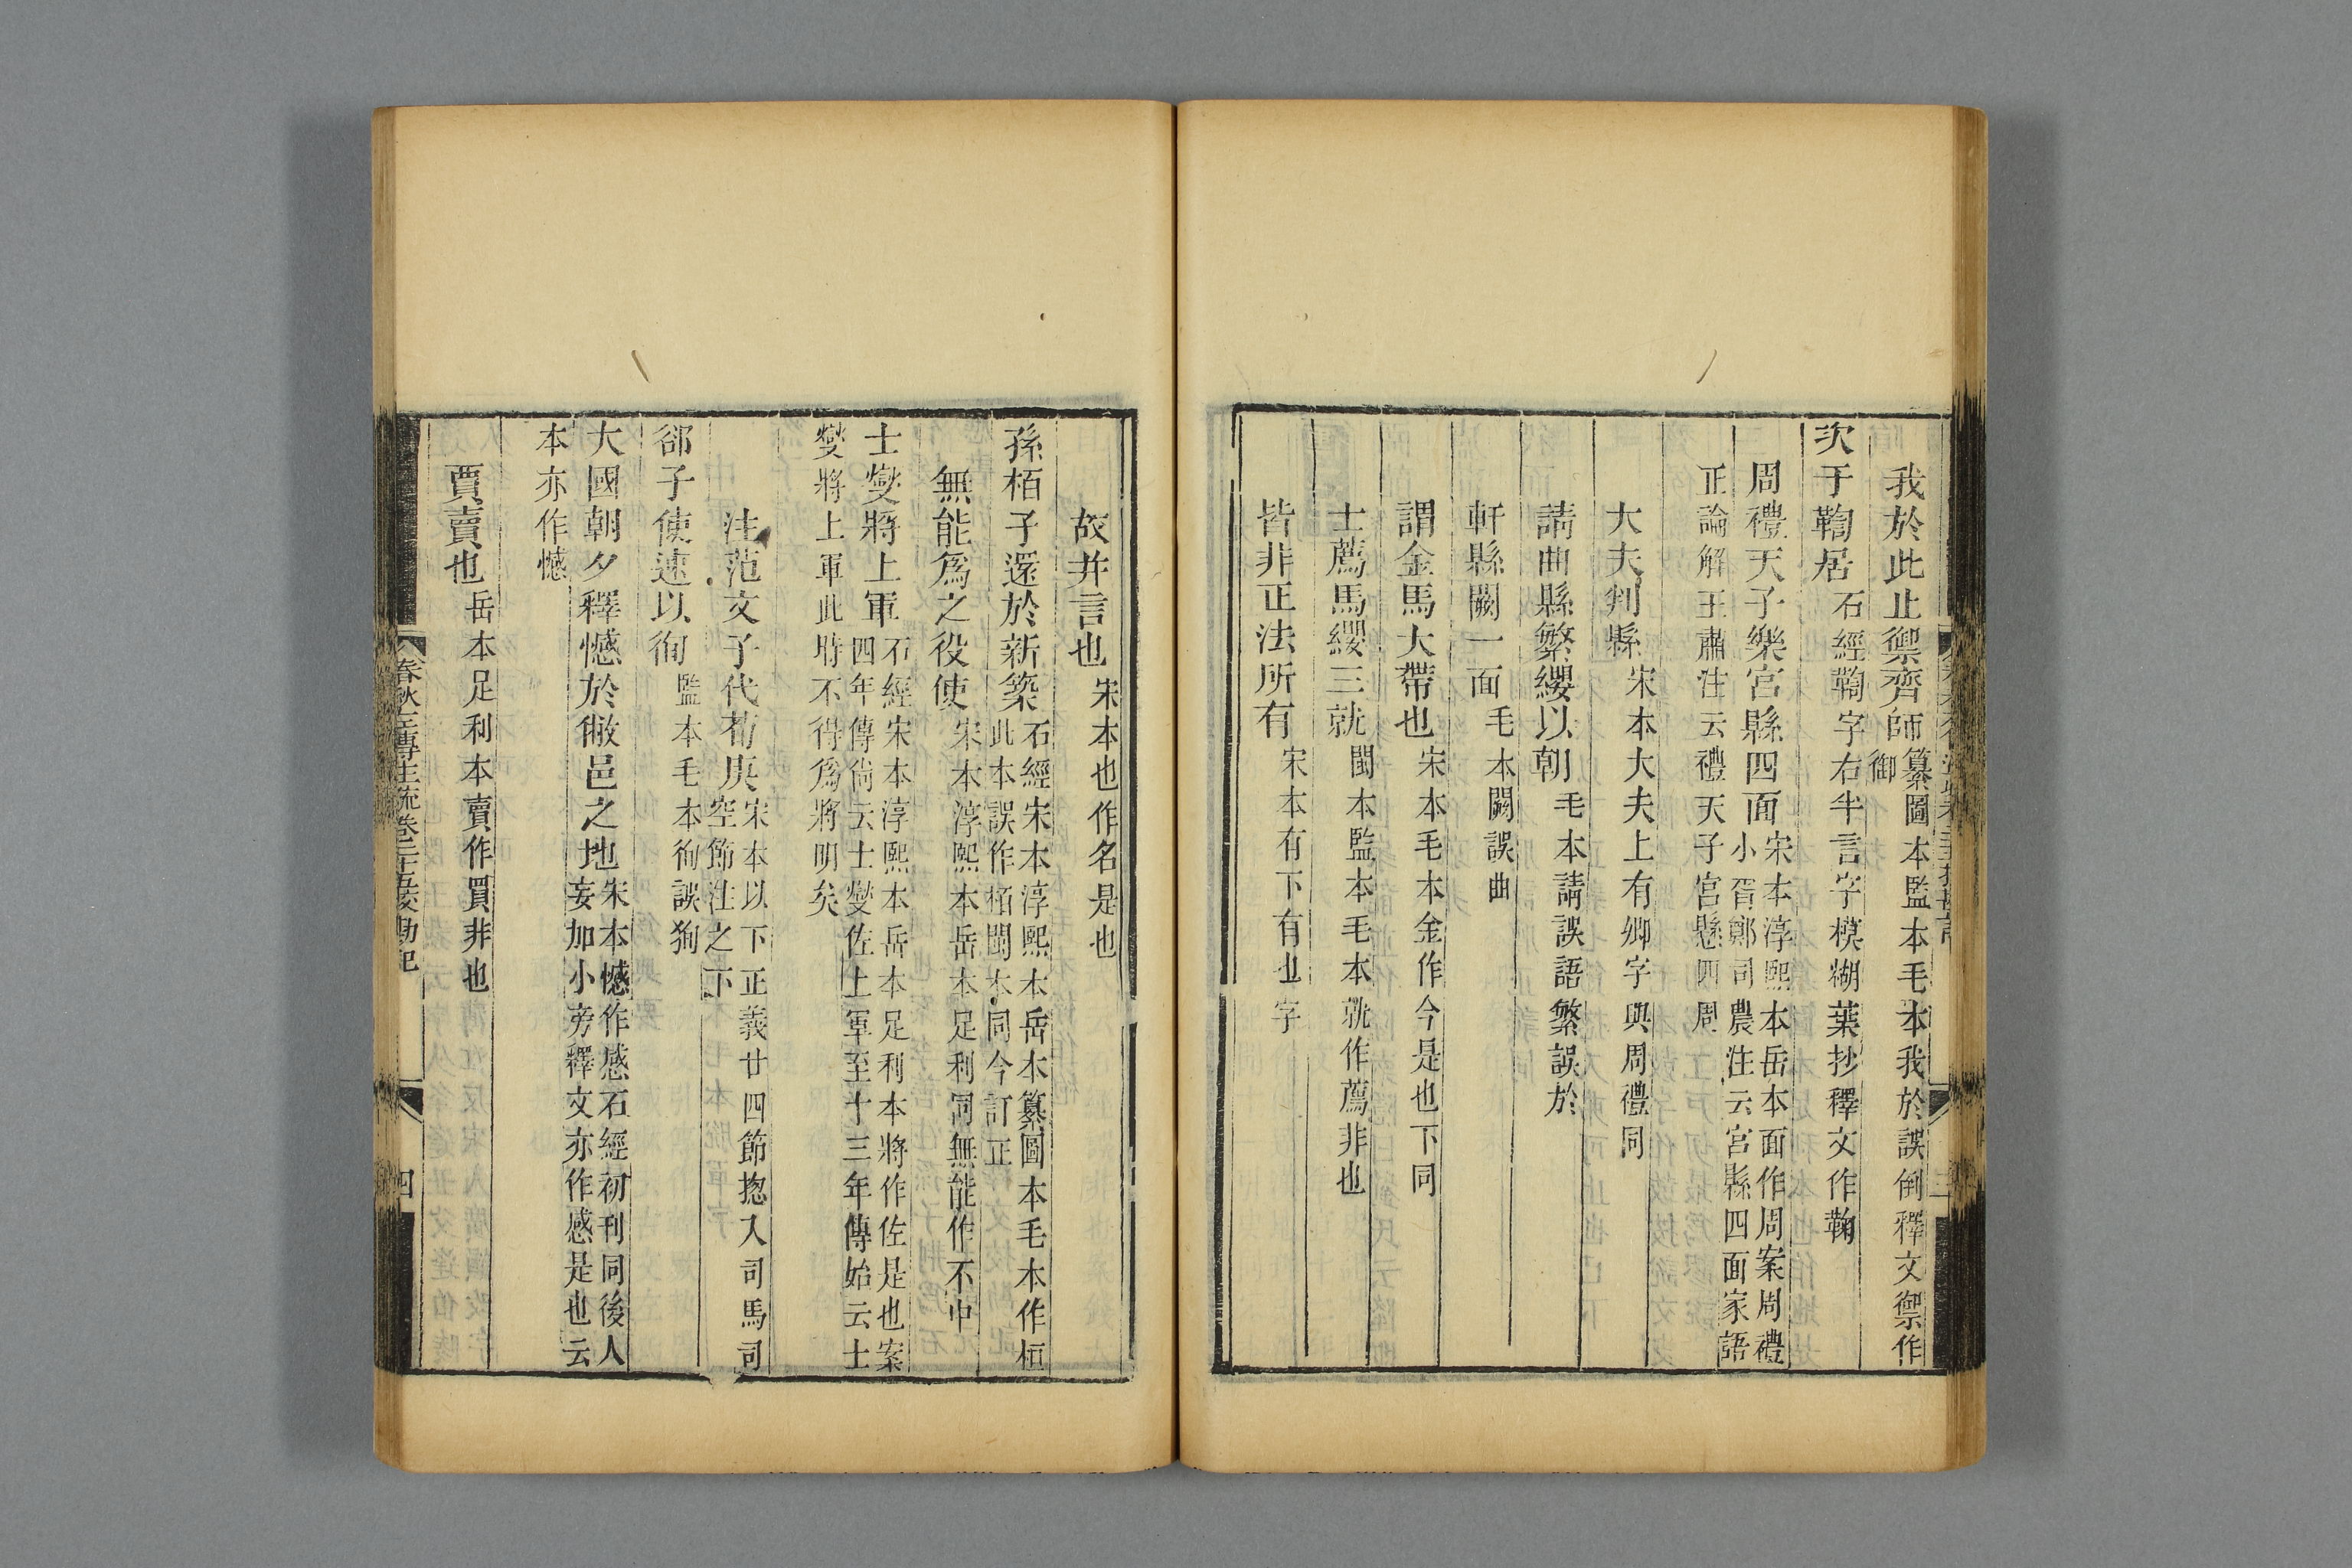 我於此止禦齊師纂圖本監本毛本我於誤倒釋文禦作
御
次于鞫居石經鞫字右半言字模糊葉抄釋文作鞠
周禮天子樂宮縣四面宋本淳熙本岳本面作周案周禮
小胥鄭司農注云宮縣四面家語
正論解王肅注云禮天子宮懸四周
大夫判縣宋本大夫上有卿字與周禮同
請曲縣繁纓以朝毛本請誤語繁誤於
軒縣闕一面毛本闕誤曲
謂金馬大帶也宋本毛本金作今是也下同
士薦馬纓三就閩本監本毛本就作薦非也
皆非正法所有宋本有下有也字
故并言也宋本也作名是也
孫栢子還於新築石經宋本淳熙本岳本纂圖本毛本作桓
此本誤作栢閩本同今訂正
無能爲之役使宋本淳熙本岳本足利同無能作不中
士燮將上軍石經宋本淳熙本岳本足利本將作佐是也案
四年傳尙云士燮佐上軍至十三年傳始云士
燮將上軍此時不得爲將明矣
注范文子代荀庚宋本以下正義廿四節揔入司馬司
空節注之下
郤子使速以徇監本毛本徇誤狥
大國朝夕釋憾於敝邑之地宋本憾作感石經初刊同後人
妄加小旁釋文亦作感是也云
本亦作憾
賈賣也岳本足利本賣作買非也
春秋左傳注疏卷二十五挍勘記
四